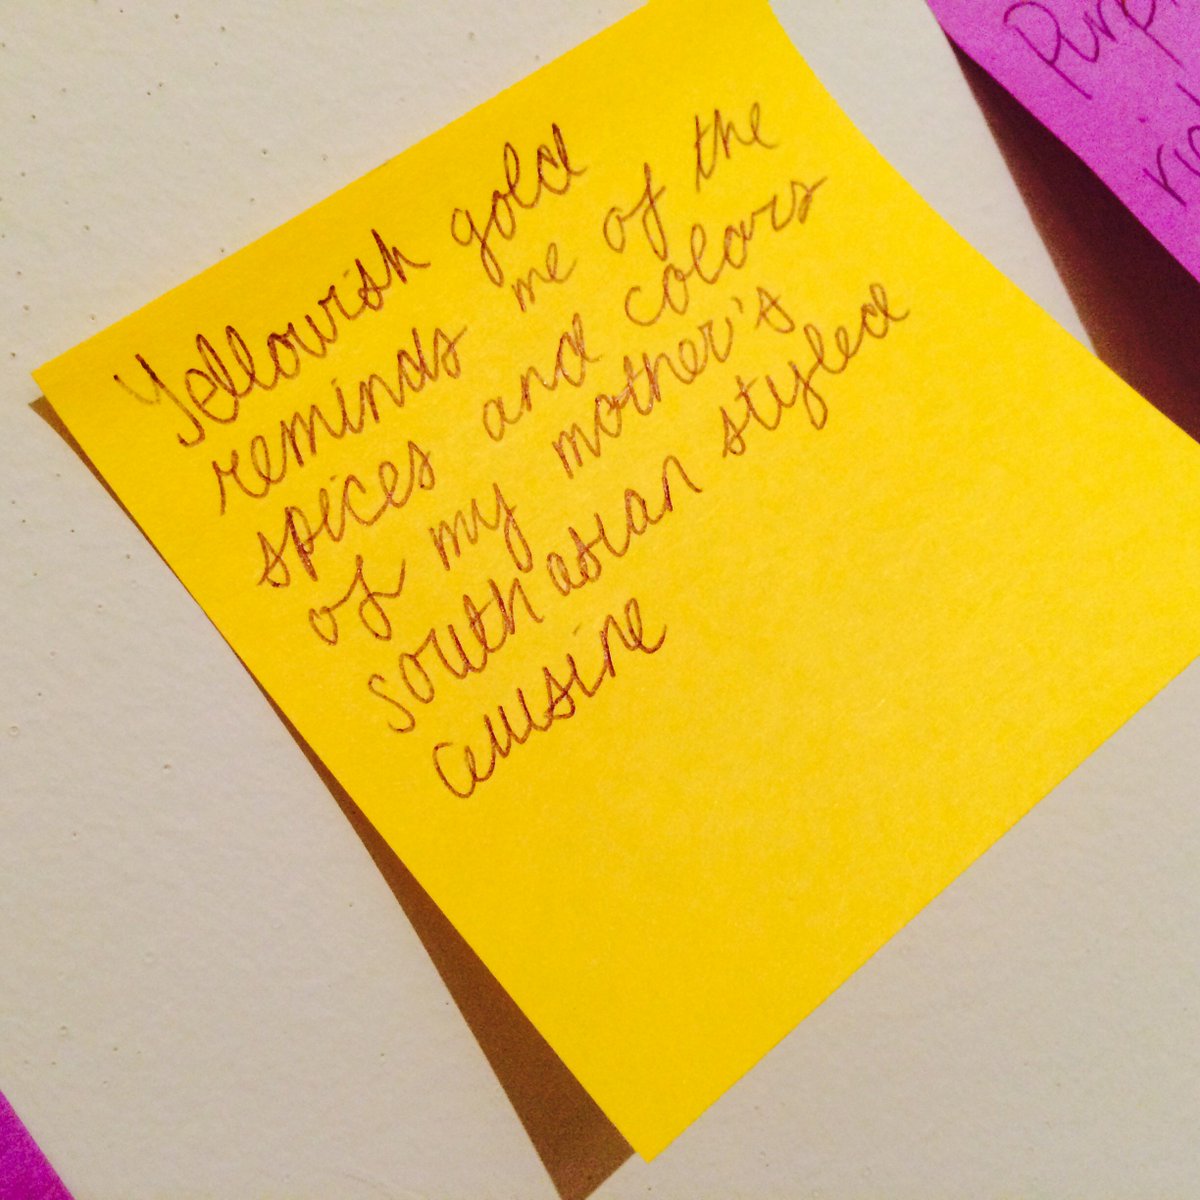 Yellowish gold
reminds me of the
spices and colors
of my mother's
south asian styled
cuisine